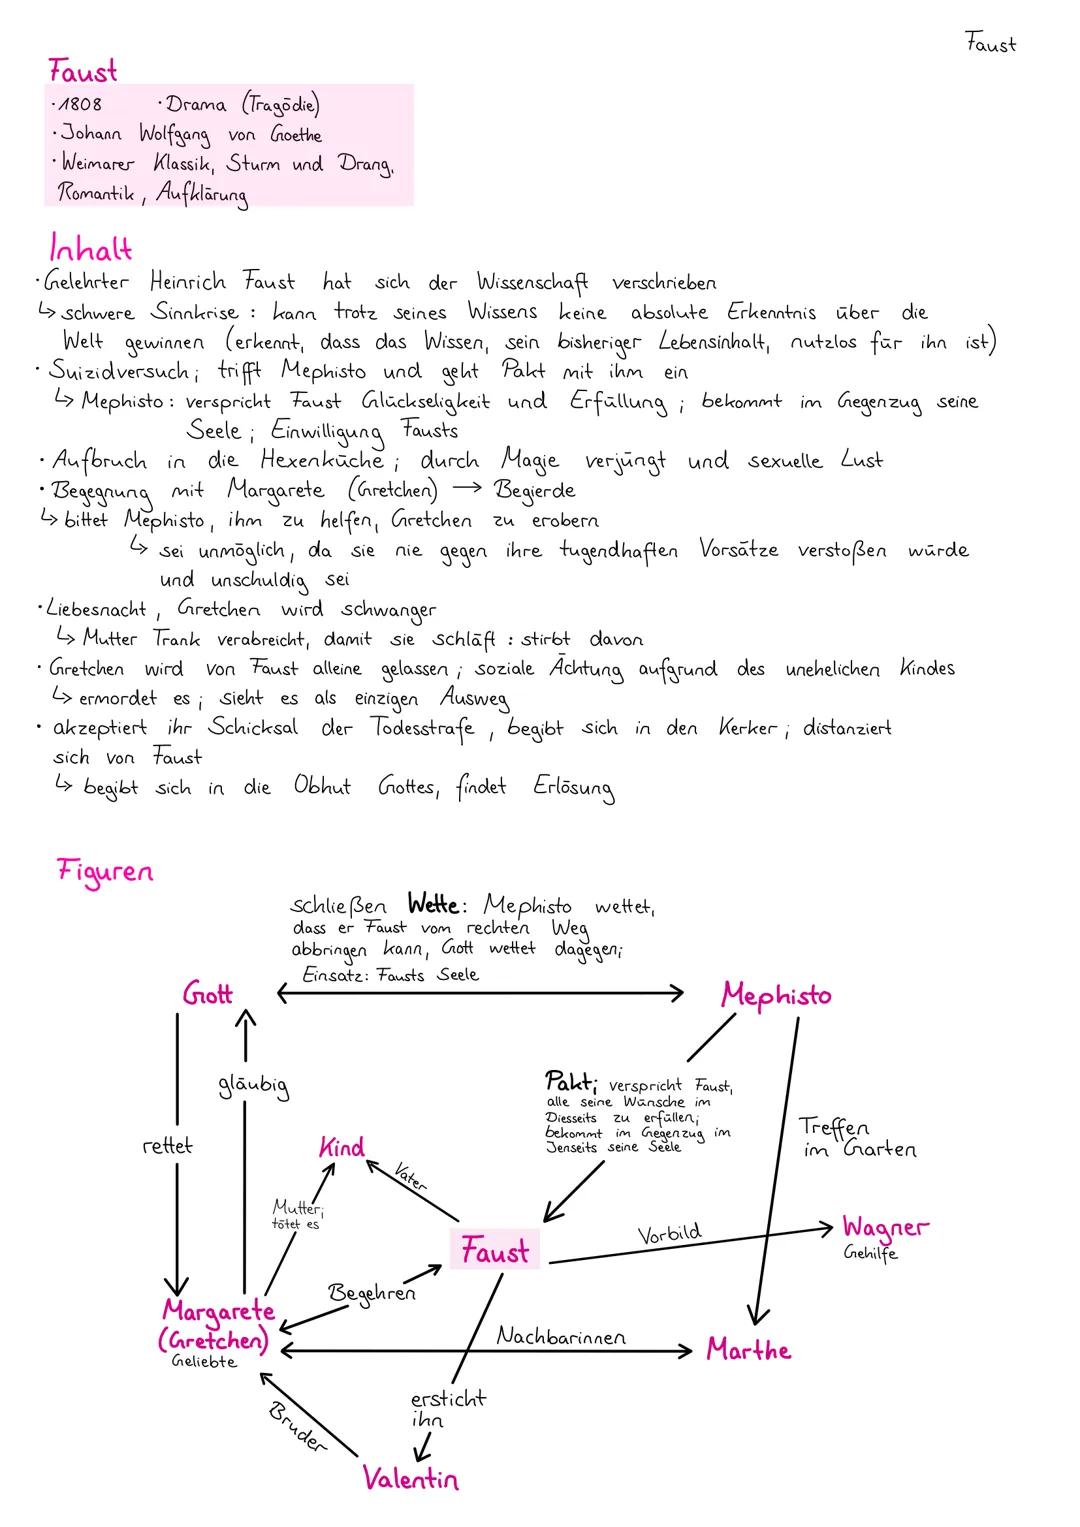 Faust
Faust
·1808 ·Drama (Tragödie)
·Johann Wolfgang von Goethe
·Weimarer Klassik, Sturm und Drang,
Romantik, Aufklärung
Inhalt
·Gelehrter Heinrich Faust hat sich der Wissenschaft verschrieben
↳ schwere Sinnkrise : kann trotz seines Wissens keine absolute Erkenntnis über die
Welt gewinnen (erkennt, dass das Wissen, sein bisheriger Lebensinhalt, nutzlos für ihn ist)
· Suizidversuch; trifft Mephisto und geht Pakt mit ihm ein
↳ Mephisto: verspricht Faust Glückseligkeit und Erfüllung ; bekommt im Gegenzug seine
Seele ; Einwilligung Fausts
· Aufbruch in die Hexenküche ; durch Magie verjüngt und sexuelle Lust
· Begegnung mit Margarete (Gretchen) → Begierde
↳ bittet Mephisto, ihm zu helfen, Gretchen zu erobern
↳ sei unmöglich, da sie nie gegen ihre tugendhaften Vorsätze verstoßen würde
und unschuldig sei
·Liebesnacht, Gretchen wird schwanger
↳ Mutter Trank verabreicht, damit sie schläft : stirbt davon
· Gretchen wird von Faust alleine gelassen ; soziale Ächtung aufgrund des unehelichen Kindes
↳ ermordet es ; sieht es als einzigen Ausweg
· akzeptiert ihr Schicksal der Todesstrafe, begibt sich in den Kerker ; distanziert
sich von Faust
↳ begibt sich in die Obhut Gottes, findet Erlösung
Figuren
schließen Wette: Mephisto wettet,
dass er Faust vom rechten Weg
abbringen kann, Gott wettet dagegen;
Einsatz: Fausts Seele
Gott
Mephisto
gläubig
Pakt; verspricht Faust,
alle seine Wünsche im
Diesseits zu erfüllen;
bekommt im Gegenzug im
Jenseits seine Seele
Treffen
im Garten
rettet
Kind
Vater
Mutter;
tötet es
Faust
Vorbild
Wagner
Gehilfe
Begehren
Margarete
(Gretchen)
Geliebte
Nachbarinnen
Marthe
ersticht
ihn
Bruder
Valentin